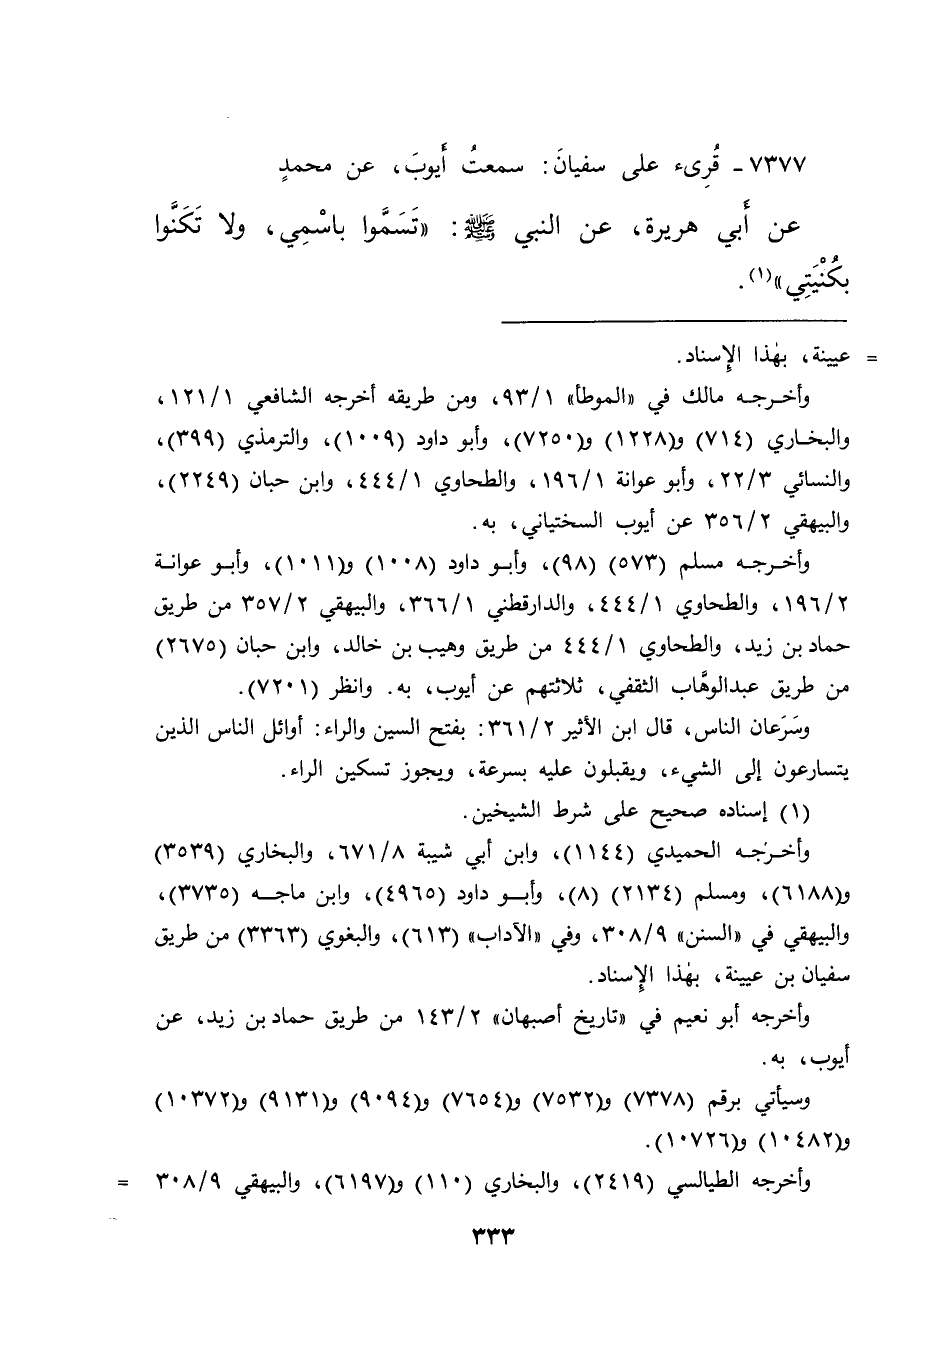 ٧٣٧٧ - قُرِىء على سفيانَ: سمعتُ أَيوبَ، عن محمدٍ
عن أَبي هريرة، عن النبي ﷺ: «تَسَمَّوا باسْمِي، ولا تَكَنَّوا
بكُنْيَتِي»(١).
= عيينة، بهٰذا الإِسناد.
وأخرجه مالك في «الموطأ» ٩٣/١، ومن طريقه أخرجه الشافعي ١٢١/١،
والبخاري (٧١٤) و(١٢٢٨) و(٧٢٥٠)، وأبو داود (١٠٠٩)، والترمذي (٣٩٩)،
والنسائي ٢٢/٣، وأبو عوانة ١٩٦/١، والطحاوي ٤٤٤/١، وابن حبان (٢٢٤٩)،
والبيهقي ٣٥٦/٢ عن أيوب السختياني، به.
وأخرجه مسلم (٥٧٣) (٩٨)، وأبو داود (١٠٠٨) و(١٠١١)، وأبو عوانة
١٩٦/٢، والطحاوي ٤٤٤/١، والدارقطني ٣٦٦/١، والبيهقي ٣٥٧/٢ من طريق
حماد بن زيد، والطحاوي ٤٤٤/١ من طريق وهيب بن خالد، وابن حبان (٢٦٧٥)
من طريق عبدالوهَّاب الثقفي، ثلاثتهم عن أيوب، به. وانظر (٧٢٠١).
وسَرَعان الناس، قال ابن الأثير ٣٦١/٢: بفتح السين والراء: أوائل الناس الذين
يتسارعون إلى الشيء، ويقبلون عليه بسرعة، ويجوز تسكين الراء.
(١) إسناده صحيح على شرط الشيخين.
وأخرجه الحميدي (١١٤٤)، وابن أبي شيبة ٦٧١/٨، والبخاري (٣٥٣٩)
و(٦١٨٨)، ومسلم (٢١٣٤) (٨)، وأبو داود (٤٩٦٥)، وابن ماجه (٣٧٣٥)،
والبيهقي في «السنن» ٣٠٨/٩، وفي «الآداب» (٦١٣)، والبغوي (٣٣٦٣) من طريق
سفيان بن عيينة، بهٰذا الإِسناد.
وأخرجه أبو نعيم في «تاريخ أصبهان» ١٤٣/٢ من طريق حماد بن زيد، عن
أيوب، به.
وسيأتي برقم (٧٣٧٨) و(٧٥٣٢) و(٧٦٥٤) و(٩٠٩٤) و(٩١٣١) و(١٠٣٧٢)
و(١٠٤٨٢) و(١٠٧٢٦).
وأخرجه الطيالسي (٢٤١٩)، والبخاري (١١٠) و(٦١٩٧)، والبيهقي ٣٠٨/٩ =
٣٣٣